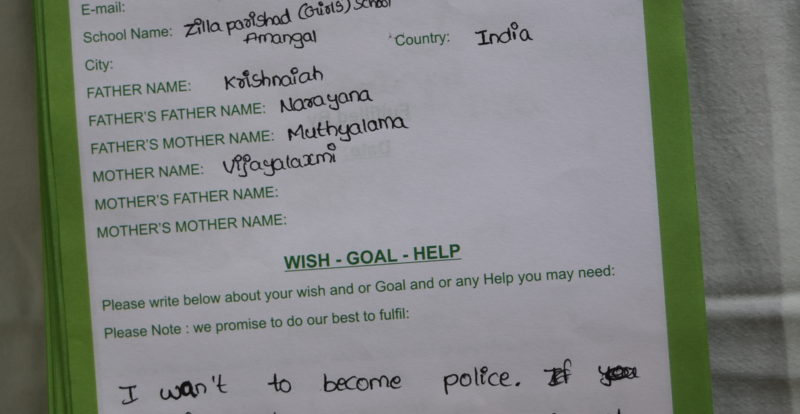 E-mail:
School Name: Zilla parishad (Girls) School
Amangal Country: India
City:
FATHER NAME: Krishnaiah
FATHER'S FATHER NAME: Narayana
FATHER'S MOTHER NAME: Muthyalama
MOTHER NAME: Vijayalaxmi
MOTHER'S FATHER NAME:
MOTHER'S MOTHER NAME:
WISH - GOAL - HELP
Please write below about your wish and or Goal and or any Help you may need:
Please Note : we promise to do our best to fulfil:
I wan't to become police. If